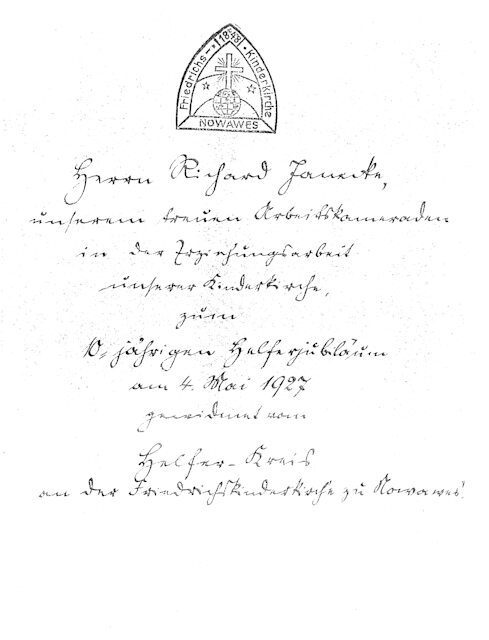 Friedrichs-
1848
Kinderkirche
NOWAWES
Herrn Richard Janecke,
unserem treuen Arbeitskameraden
in der Erziehungsarbeit
unserer Kinderkirche,
zum
10-jährigen Helferjubiläum
am 4. Mai 1927
gewidmet vom
Helfer-Kreis
an der Friedrichskinderkirche zu Nowawes.